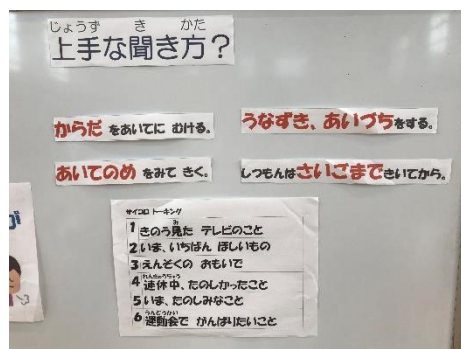 じょうず き かた
上手な聞き方？
からだ をあいてに むける。
うなずき、あいづちをする。
あいてのめ をみて きく。
しつもんはさいごまできいてから。
サイコロ トーキング
み
1 きのう見た テレビのこと
2 いま、いちばん ほしいもの
3 えんそくの おもいで
れんきゅうちゅう
4 連休中、たのしかったこと
5 いま、たのしみなこと
うんどうかい
6 運動会で がんばりたいこと